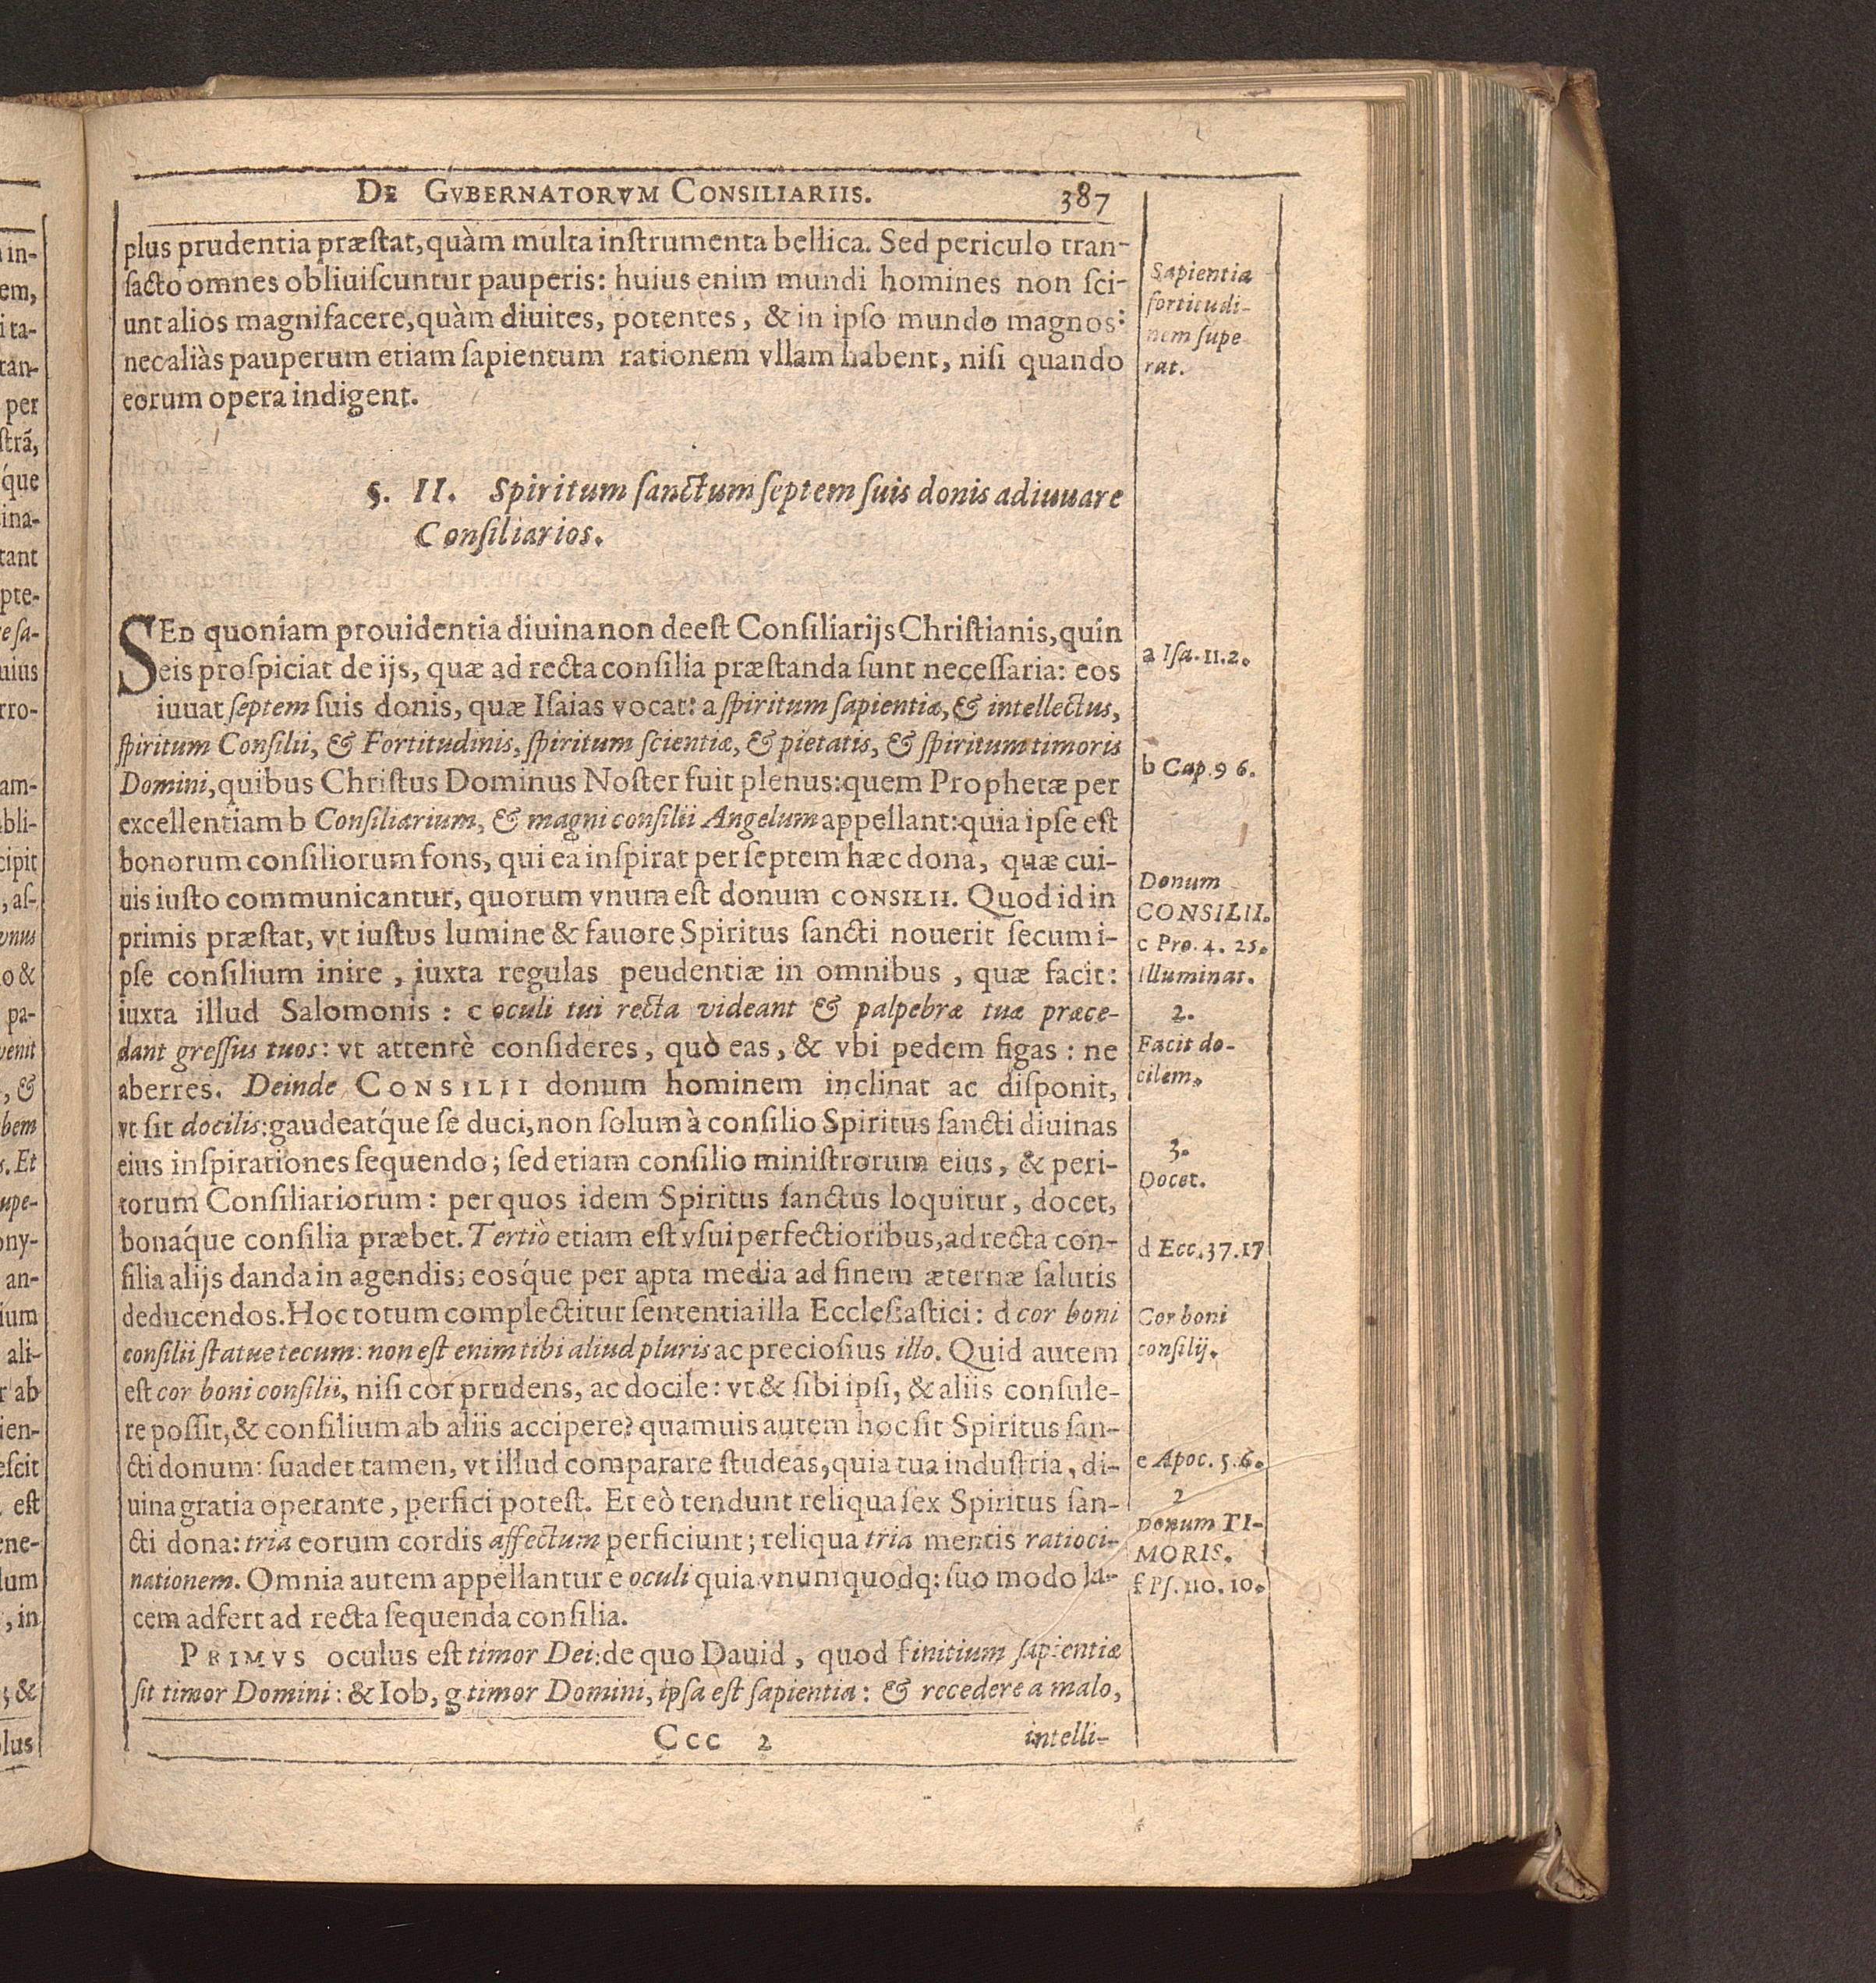 DE GVBERNATORVM CONSILIARIIS. 387
plus prudentia præſtat, quàm multa inſtrumenta bellica. Sed periculo tran-
ſacto omnes obliuiſcuntur pauperis: huius enim mundi homines non ſci-
unt alios magnifacere, quàm diuites, potentes, & in ipſo mundo magnos:
nec aliàs pauperum etiam ſapientum rationem vllam habent, niſi quando
eorum opera indigent.
Sapientia
fortitudi-
nem ſupe
rat.
§. II. Spiritum ſanctum ſeptem ſuis donis adiuuare
Conſiliarios.
SED quoniam prouidentia diuina non deeſt Conſiliarijs Chriſtianis, quin
eis proſpiciat de ijs, quæ ad recta conſilia præſtanda ſunt neceſſaria: eos
iuuat ſeptem ſuis donis, quæ Iſaias vocat: a ſpiritum ſapientiæ, & intellectus,
ſpiritum Conſilii, & Fortitudinis, ſpiritum ſcientiæ, & pietatis, & ſpiritum timoris
Domini, quibus Chriſtus Dominus Noſter fuit plenus: quem Prophetæ per
excellentiam b Conſiliarium, & magni conſilii Angelum appellant: quia ipſe eſt
bonorum conſiliorum fons, qui ea inſpirat per ſeptem hæc dona, quæ cui-
uis iuſto communicantur, quorum vnum eſt donum CONSILII. Quod id in
primis præſtat, vt iuſtus lumine & fauore Spiritus ſancti nouerit ſecum i-
pſe conſilium inire, iuxta regulas peudentiæ in omnibus, quæ facit:
iuxta illud Salomonis: c oculi tui recta videant & palpebræ tuæ præce-
dant greſſus tuos: vt attentè conſideres, quò eas, & vbi pedem figas: ne
aberres. Deinde CONSILII donum hominem inclinat ac diſponit,
vt ſit docilis: gaudeatq́ue ſe duci, non ſolum à conſilio Spiritus ſancti diuinas
eius inſpirationes ſequendo; ſed etiam conſilio miniſtrorum eius, & peri-
torum Conſiliariorum: per quos idem Spiritus ſanctus loquitur, docet,
bonaq́ue conſilia præbet. Tertiò etiam eſt vſui perfectioribus, ad recta con-
ſilia alijs danda in agendis; eosq́ue per apta media ad finem æternæ ſalutis
deducendos. Hoc totum complectitur ſententia illa Eccleſiaſtici: d cor boni
conſilii ſtatue tecum: non eſt enim tibi aliud pluris ac precioſius illo. Quid autem
eſt cor boni conſilii, niſi cor prudens, ac docile: vt & ſibi ipſi, & aliis conſule-
re poſſit, & conſilium ab aliis accipere? quamuis autem hoc ſit Spiritus ſan-
cti donum: ſuadet tamen, vt illud comparare ſtudeas, quia tua induſtria, di-
uina gratia operante, perfici poteſt. Et eò tendunt reliqua ſex Spiritus ſan-
cti dona: tria eorum cordis affectum perficiunt; reliqua tria mentis ratioci-
nationem. Omnia autem appellantur e oculi quia vnumquodq; ſuo modo lu-
cem adfert ad recta ſequenda conſilia.
PRIMVS oculus eſt timor Dei: de quo Dauid, quod f initium ſapientiæ
ſit timor Domini: & Iob, g timor Domini, ipſa eſt ſapientia: & recedere a malo,
Ccc 2 intelli-
a Iſa. 11. 2.
b Cap. 9 6.
Donum
CONSILII.
c Pro. 4. 25.
Illuminat.
2.
Facit do-
cilem.
3.
Docet.
d Ecc. 37. 17
Cor boni
conſilij.
e Apoc. 5. 6.
2
Donum TI-
MORIS.
f Pſ. 110. 10.
in-
em,
i ta-
tan-
per
ſtrã,
q́ue
ina-
tant
pte-
e ſa-
uius
rro-
am-
bli-
cipit
, aſ-
vnus
o &
pa-
venit
, &
bem
s. Et
upe-
ony-
an-
ium
ali-
r ab
ien-
eſcit
eſt
ene-
lum
, in
; &
plus